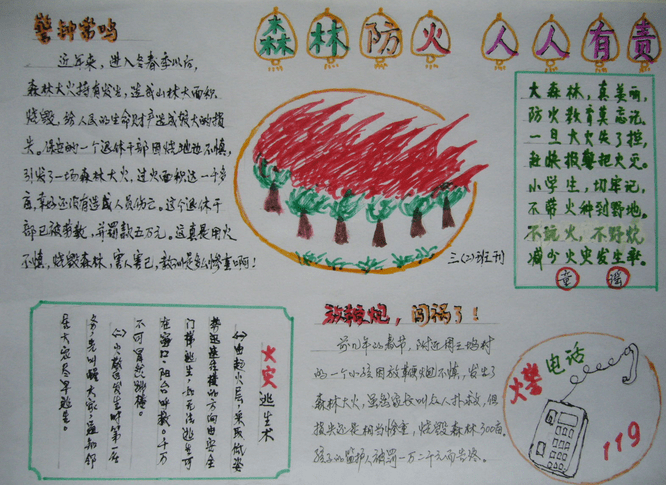 森林防火 人人有责
警钟常鸣
近年来，进入冬春季以后，
森林大火时有发生，造成山林大面积
烧毁，给人民的生命财产造成很大的损
失。保安的一个退休干部因烧地边不慎，
引发了一场森林大火，过火面积达一千多
亩，幸好还没有造成人员伤亡。这个退休干
部已被拘教，并罚款五万元，这真是用火
不慎，烧毁森林，害人害己，教训是多么惨重啊！
大森林，真美丽，
防火教育莫忘记，
一旦大火失了控，
赶快报警把火灭。
小学生，切牢记，
不带火种到野地。
不玩火，不野炊，
减少火灾发生率。
童谣
三(2)班刊
火灾逃生术
(一)由起火层，采取低姿
势迅速往楼的方向由安全
门梯逃生，如无法逃生可
在窗口、阳台呼救。千万
不可冒然跳楼。
(二)火警发生时第一层
务先叫醒大家，通知邻
居大家及早逃生。
放鞭炮，闯祸了！
前几年的春节，附近周三地村
的一个小孩因放鞭炮不慎，发生了
森林大火，虽然家长叫众人扑救，但
损失还是相当惨重，烧毁森林300亩，
孩子的监护人被罚一万二千元而告终。
火警电话
119